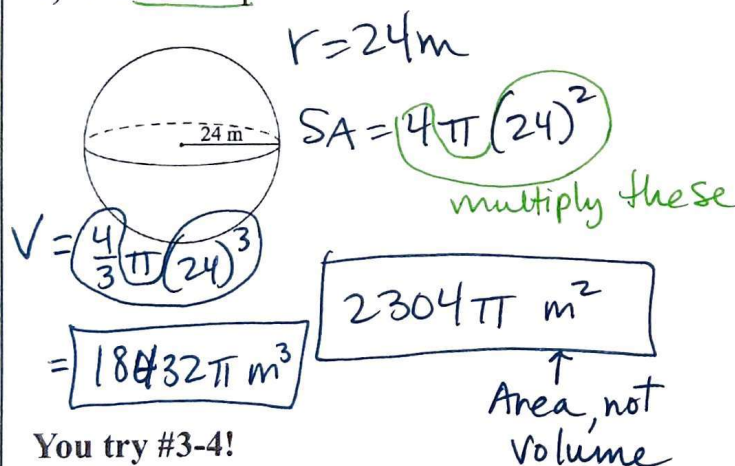 r = 24m
24 m
SA = 4π(24)²
multiply these
V = 4/3 π(24)³
2304π m²
= 18432π m³
Area, not
Volume
You try #3-4!